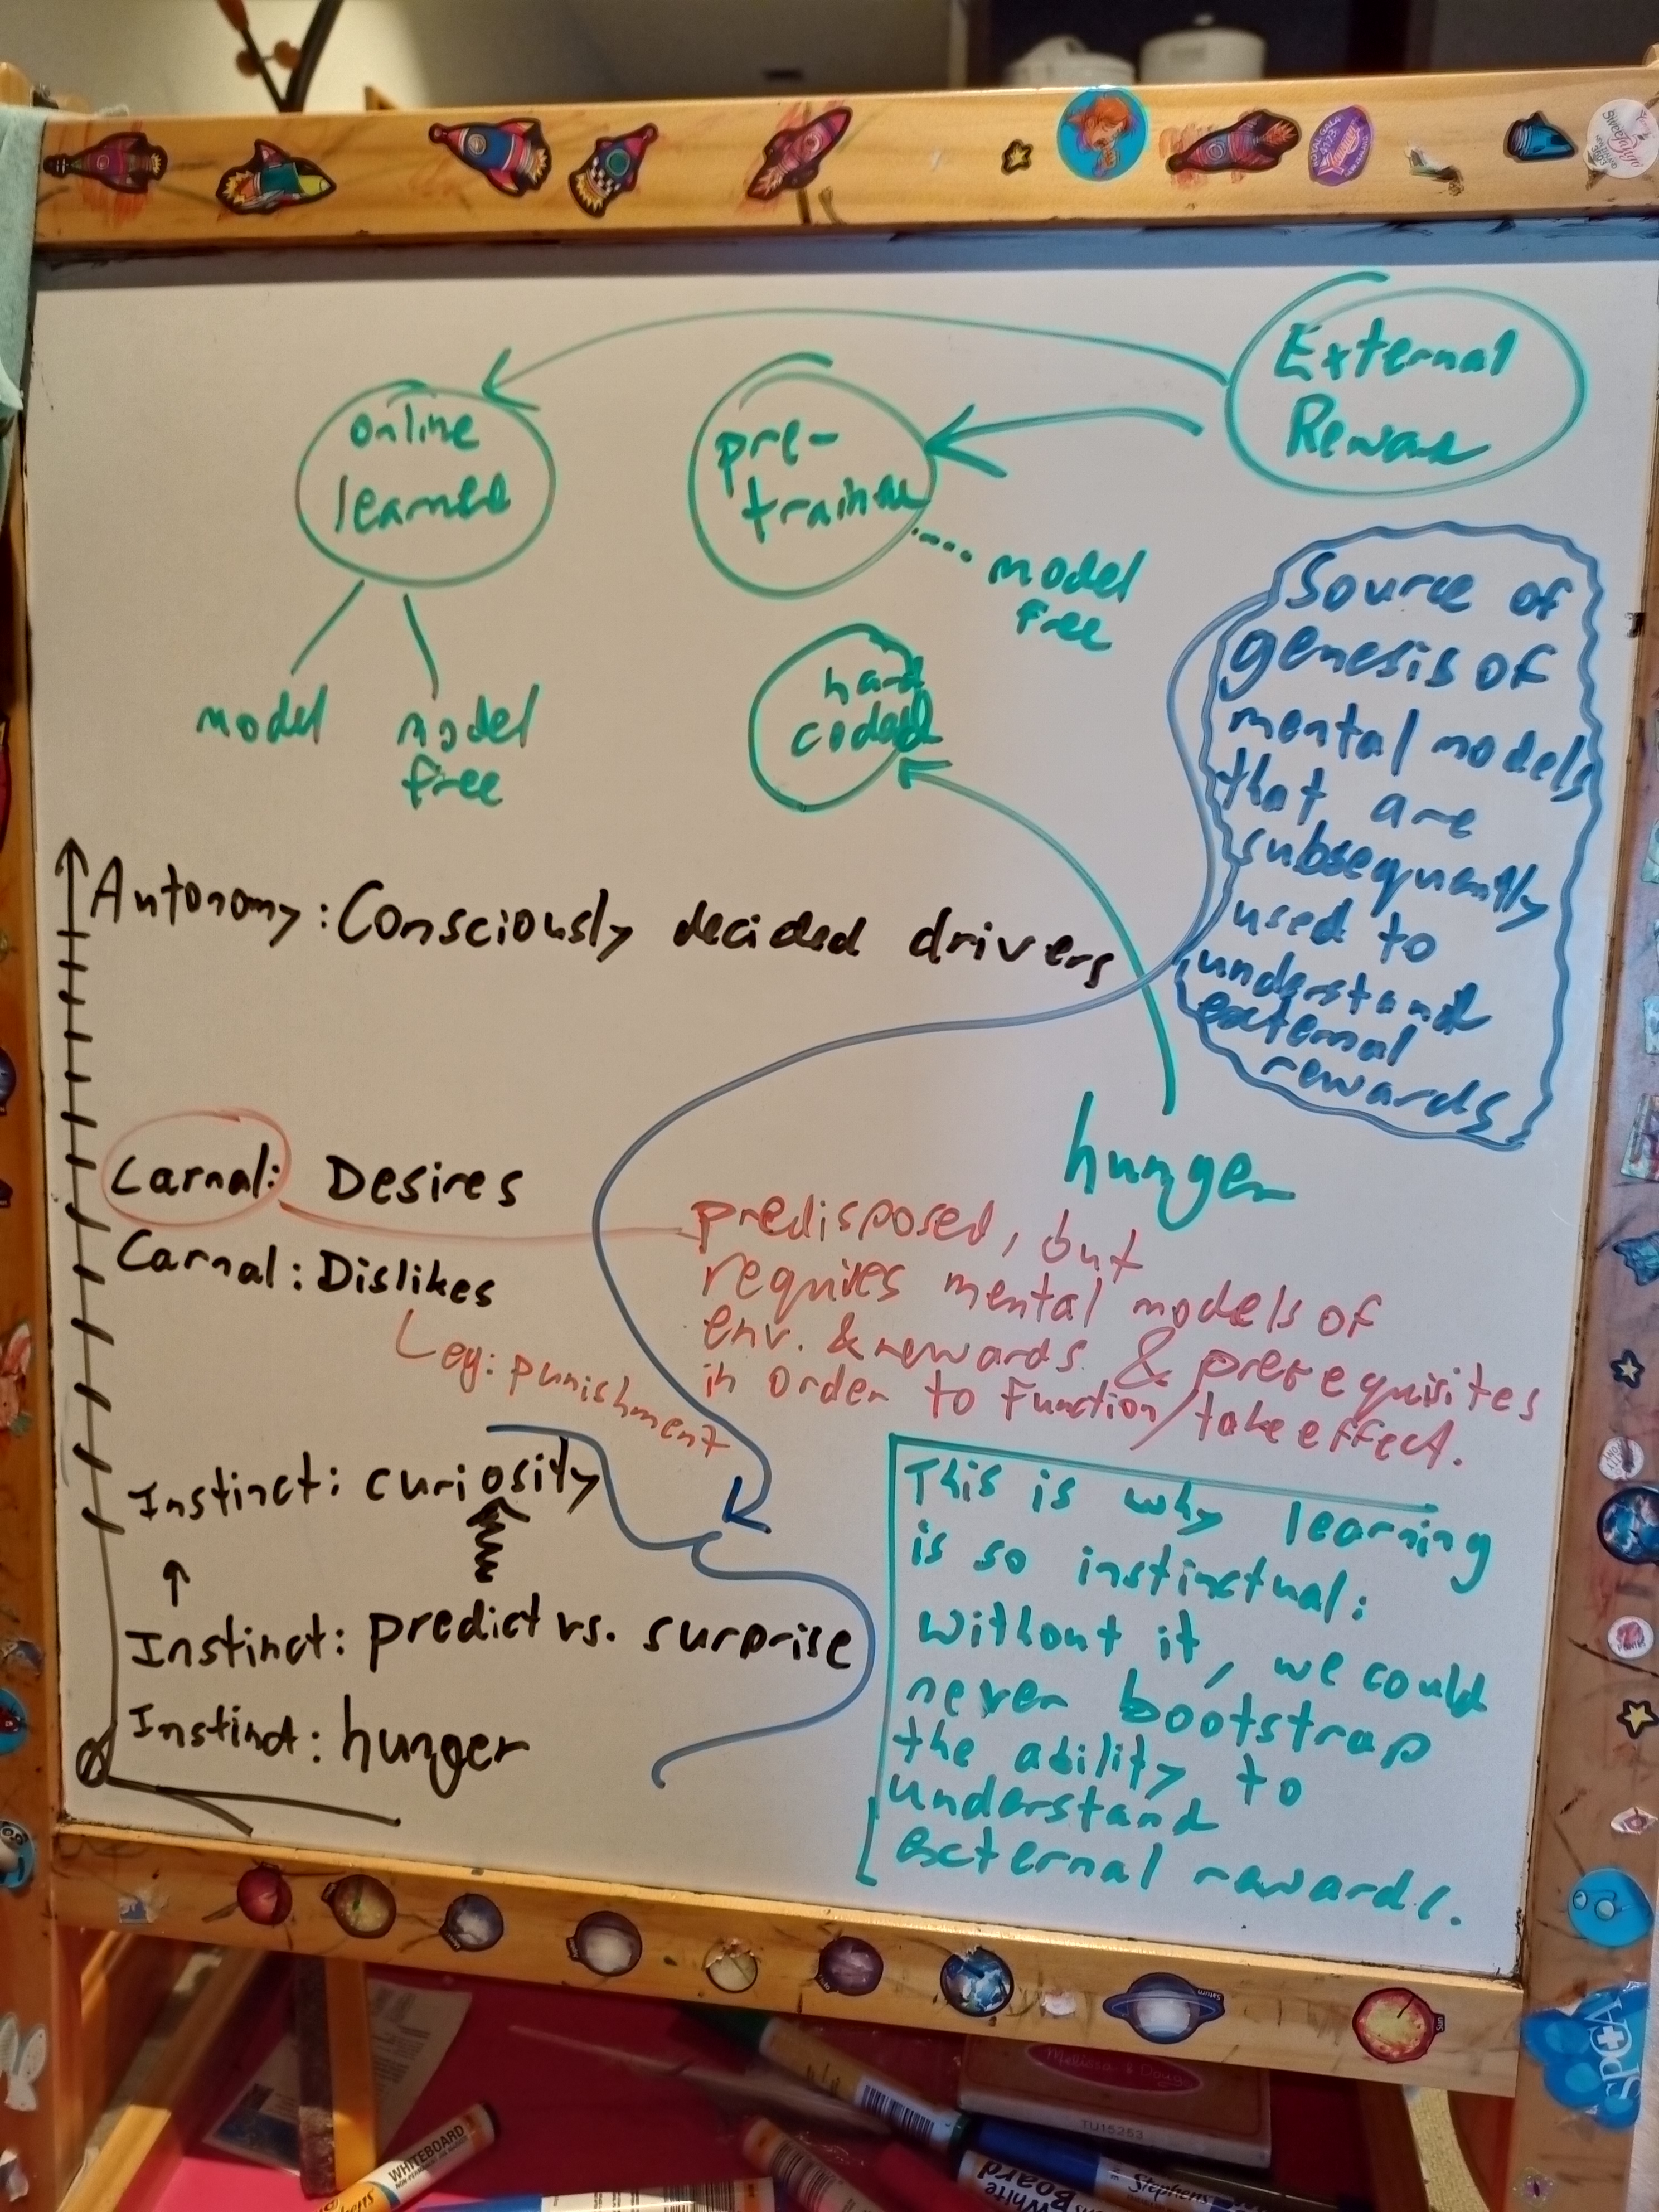 External
Reward
online
learned
pre-
trained
model
free
hard
coded
model
model
free
Source of
genesis of
mental models
that are
subsequently
used to
understand
external
rewards
Autonomy: Consciously decided drivers
hunger
Carnal: Desires
Carnal: Dislikes
predisposed, but
requires mental models of
env. & rewards & prerequisites
in order to function/take effect.
eg: punishment
Instinct: curiosity
Instinct: predict vs. surprise
Instinct: hunger
This is why learning
is so instinctual:
without it, we could
never bootstrap
the ability to
understand
external rewards.
Saturn
SPCA
Melissa & Doug
TU15253
WHITEBOARD
White
Board
Stephens